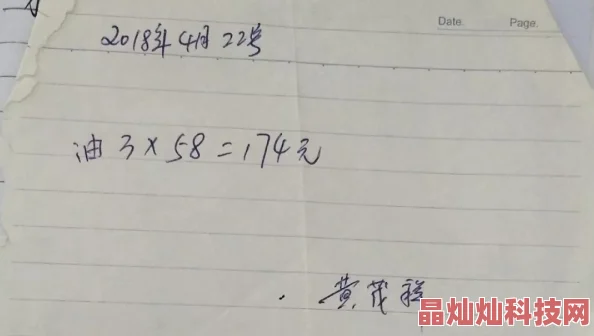 Date. Page.
2018年4月22号
油 3×58=174元
黄茂
晶灿灿科技网